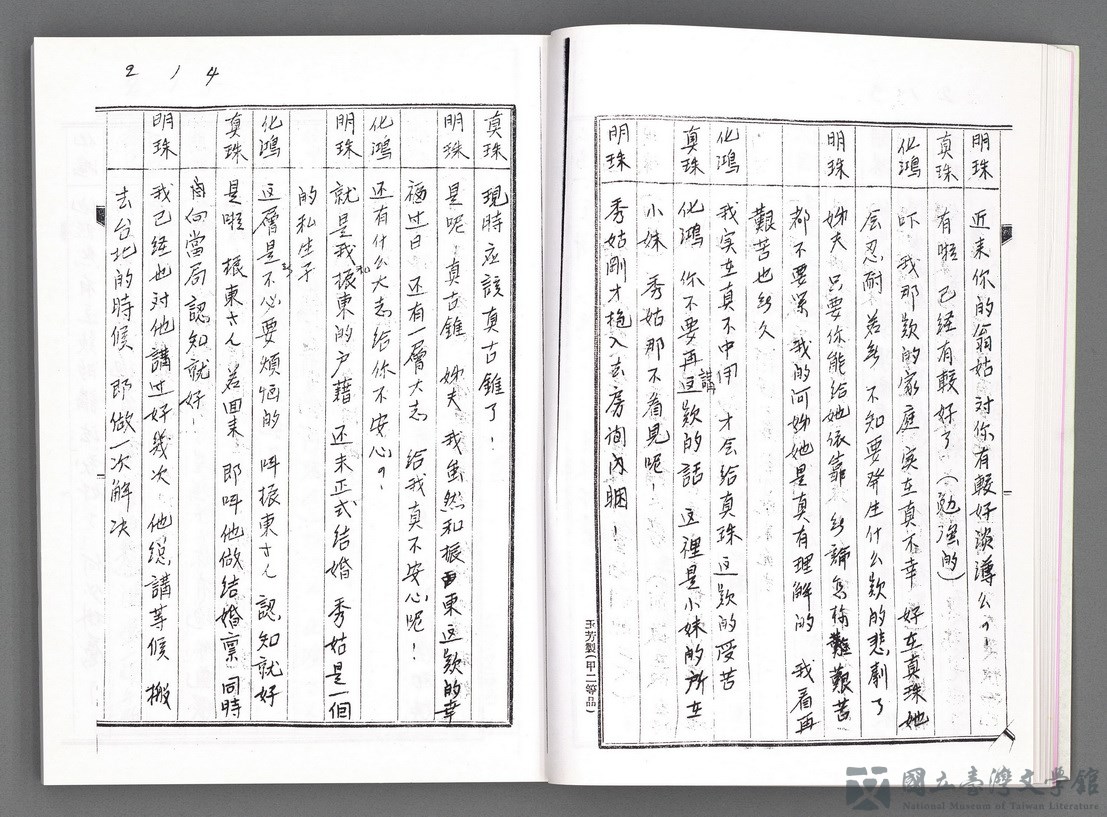 明珠 近来你的翁姑 対你有較好淡薄么?!
真珠 有啦 已経有較好了 (勉強的)
化鴻 吓 我那款的家庭 实在真不幸 好在真珠她
会忍耐 若無 不知要発生什么款的悲劇了
明珠 姊夫 只要你能給她依靠 艱苦
都不要緊 我的阿姊她是真有理解的 我看再
艱苦也無久
化鴻 我实在真不中用 才会給真珠這款的受苦
真珠 化鴻 你不要再講這款的話 這裡是小妹的所在
小妹 秀姑那不看見呢!
明珠 秀姑剛才抱入去房间内睏!
玉芳製(甲二等品)
214
真珠 現時应該真古錐了!
明珠 是呢 真古錐 姊夫 我虽然和振東這款的幸
福过日 还有一層大志 給我真不安心呢!
化鴻 还有什么大志給你不安心?!
明珠 就是我和振東的户籍 还未正式结婚 秀姑是一個
的私生子
化鴻 這層是不必要煩惱的 呌振東さん認知就好
真珠 是啦 振東さん若回来 即呌他做结婚禀 同時
向當局認知就好!
明珠 我已经也対他講过好幾次 他総講等候 搬
去台北的時候 即做一次解决
國立臺灣文學館
National Museum of Taiwan Literature